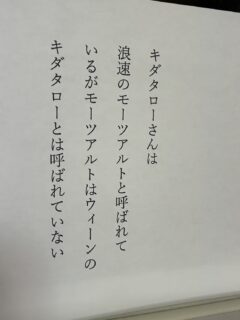 キダタローさんは
浪速のモーツアルトと呼ばれて
いるがモーツアルトはウィーンの
キダタローとは呼ばれていない